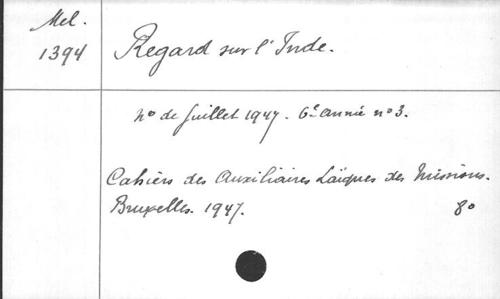 Mel.
1394
Regard sur l'Inde.
No de Juillet 1947. 6e année no 3.
Cahiers des Auxiliaires Laïques des Missions.
Bruxelles. 1947. 8o